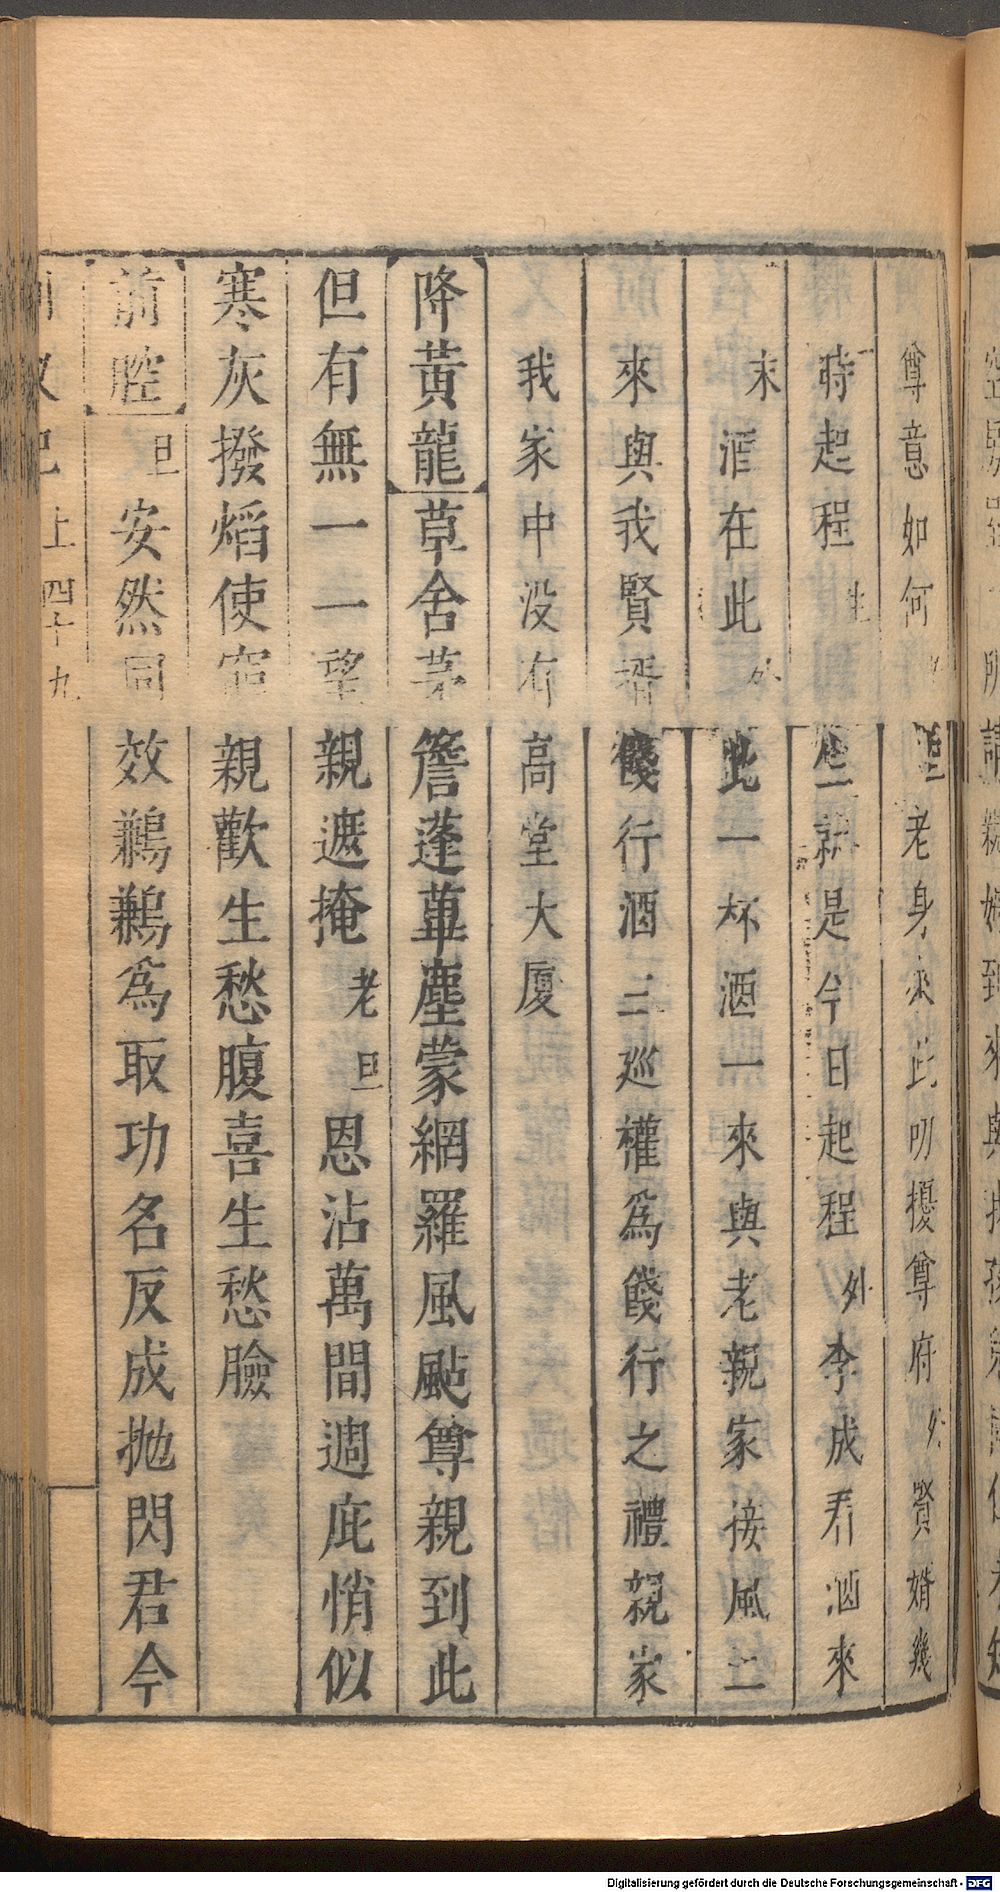 尊意如何外旦老身來此叨擾尊府外賢婿幾
時起程生生就是今日起程外李成看酒來
末酒在此外此一杯酒一來與老親家接風二
來與我賢婿餞行酒三巡權爲餞行之禮親家
我家中没有高堂大厦
降黃龍草舍茅簷蓬蓽塵蒙網羅風颭尊親到此
但有無一一望親遮掩老旦恩沾萬間週庇悄似
寒灰撥焰使窑親歡生愁腹喜生愁臉
前腔旦安然同效鶼鶼爲取功名反成抛閃君今
上四十九
Digitalisierung gefördert durch die Deutsche Forschungsgemeinschaft - DFG